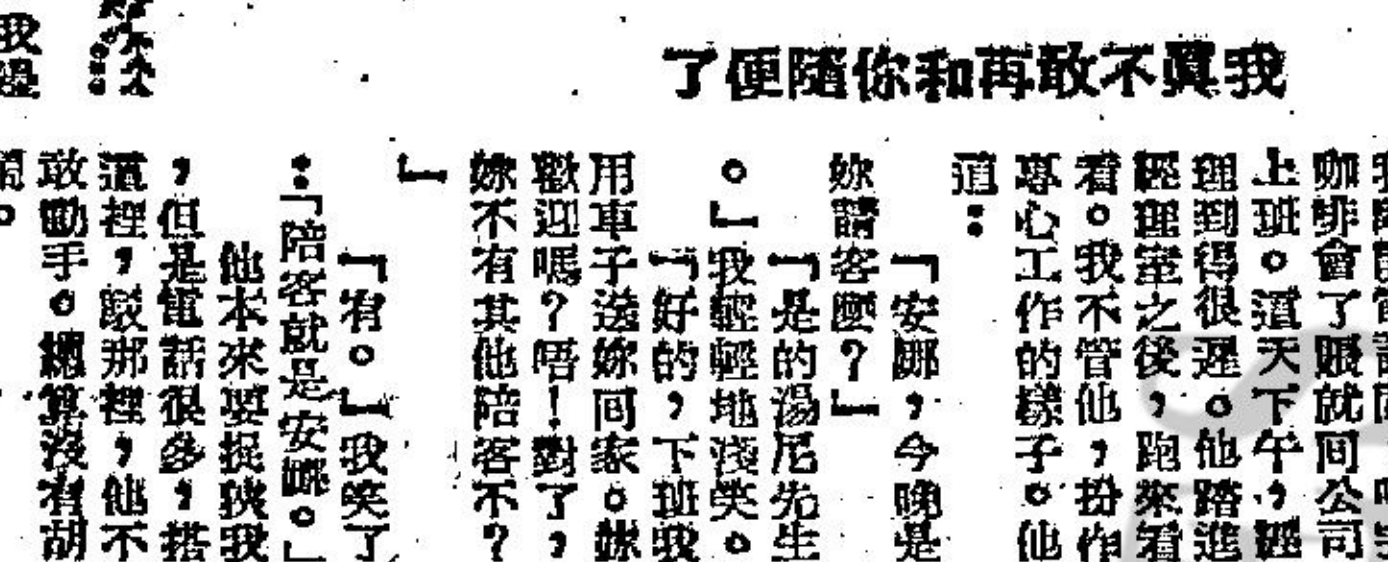 我眞不敢再和你隨便了
咖啡會了賬就囘公司
上班。這天下午,經
理到得很遲。他踏進
經理室之後,跑來看
着。我不管他,扮作
專心工作的樣子。他
道:
「安娜,今晚是
妳請客麽?」
「是的湯尼先生
。」我輕輕地淺笑。
「好的,下班我
用車子送妳囘家。妳
歡迎嗎?唔!對了,
妳不有其他陪客不?
」
「有。」我笑了
:「陪客就是安娜。」
他本來要捉狹我
,但是電話很多,搭
這裡,駁那裡,他不
敢動手。總算沒有胡
鬧。